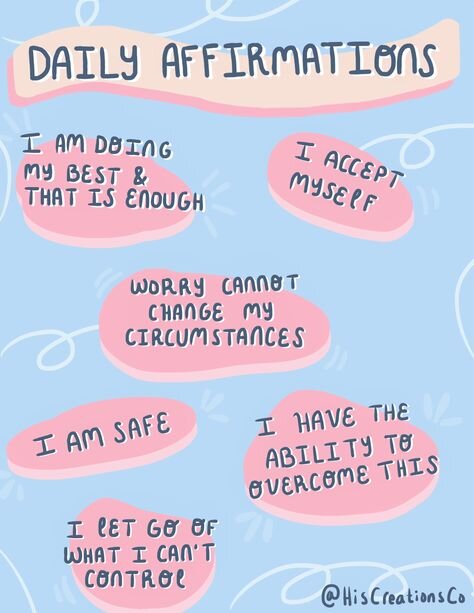 DAILY AFFIRMATIONS
I AM DOING
MY BEST &
THAT IS ENOUGH
I ACCEPT
MYSELF
WORRY CANNOT
CHANGE MY
CIRCUMSTANCES
I AM SAFE
I HAVE THE
ABILITY TO
OVERCOME THIS
I LET GO OF
WHAT I CAN'T
CONTROL
@HisCreationsCo